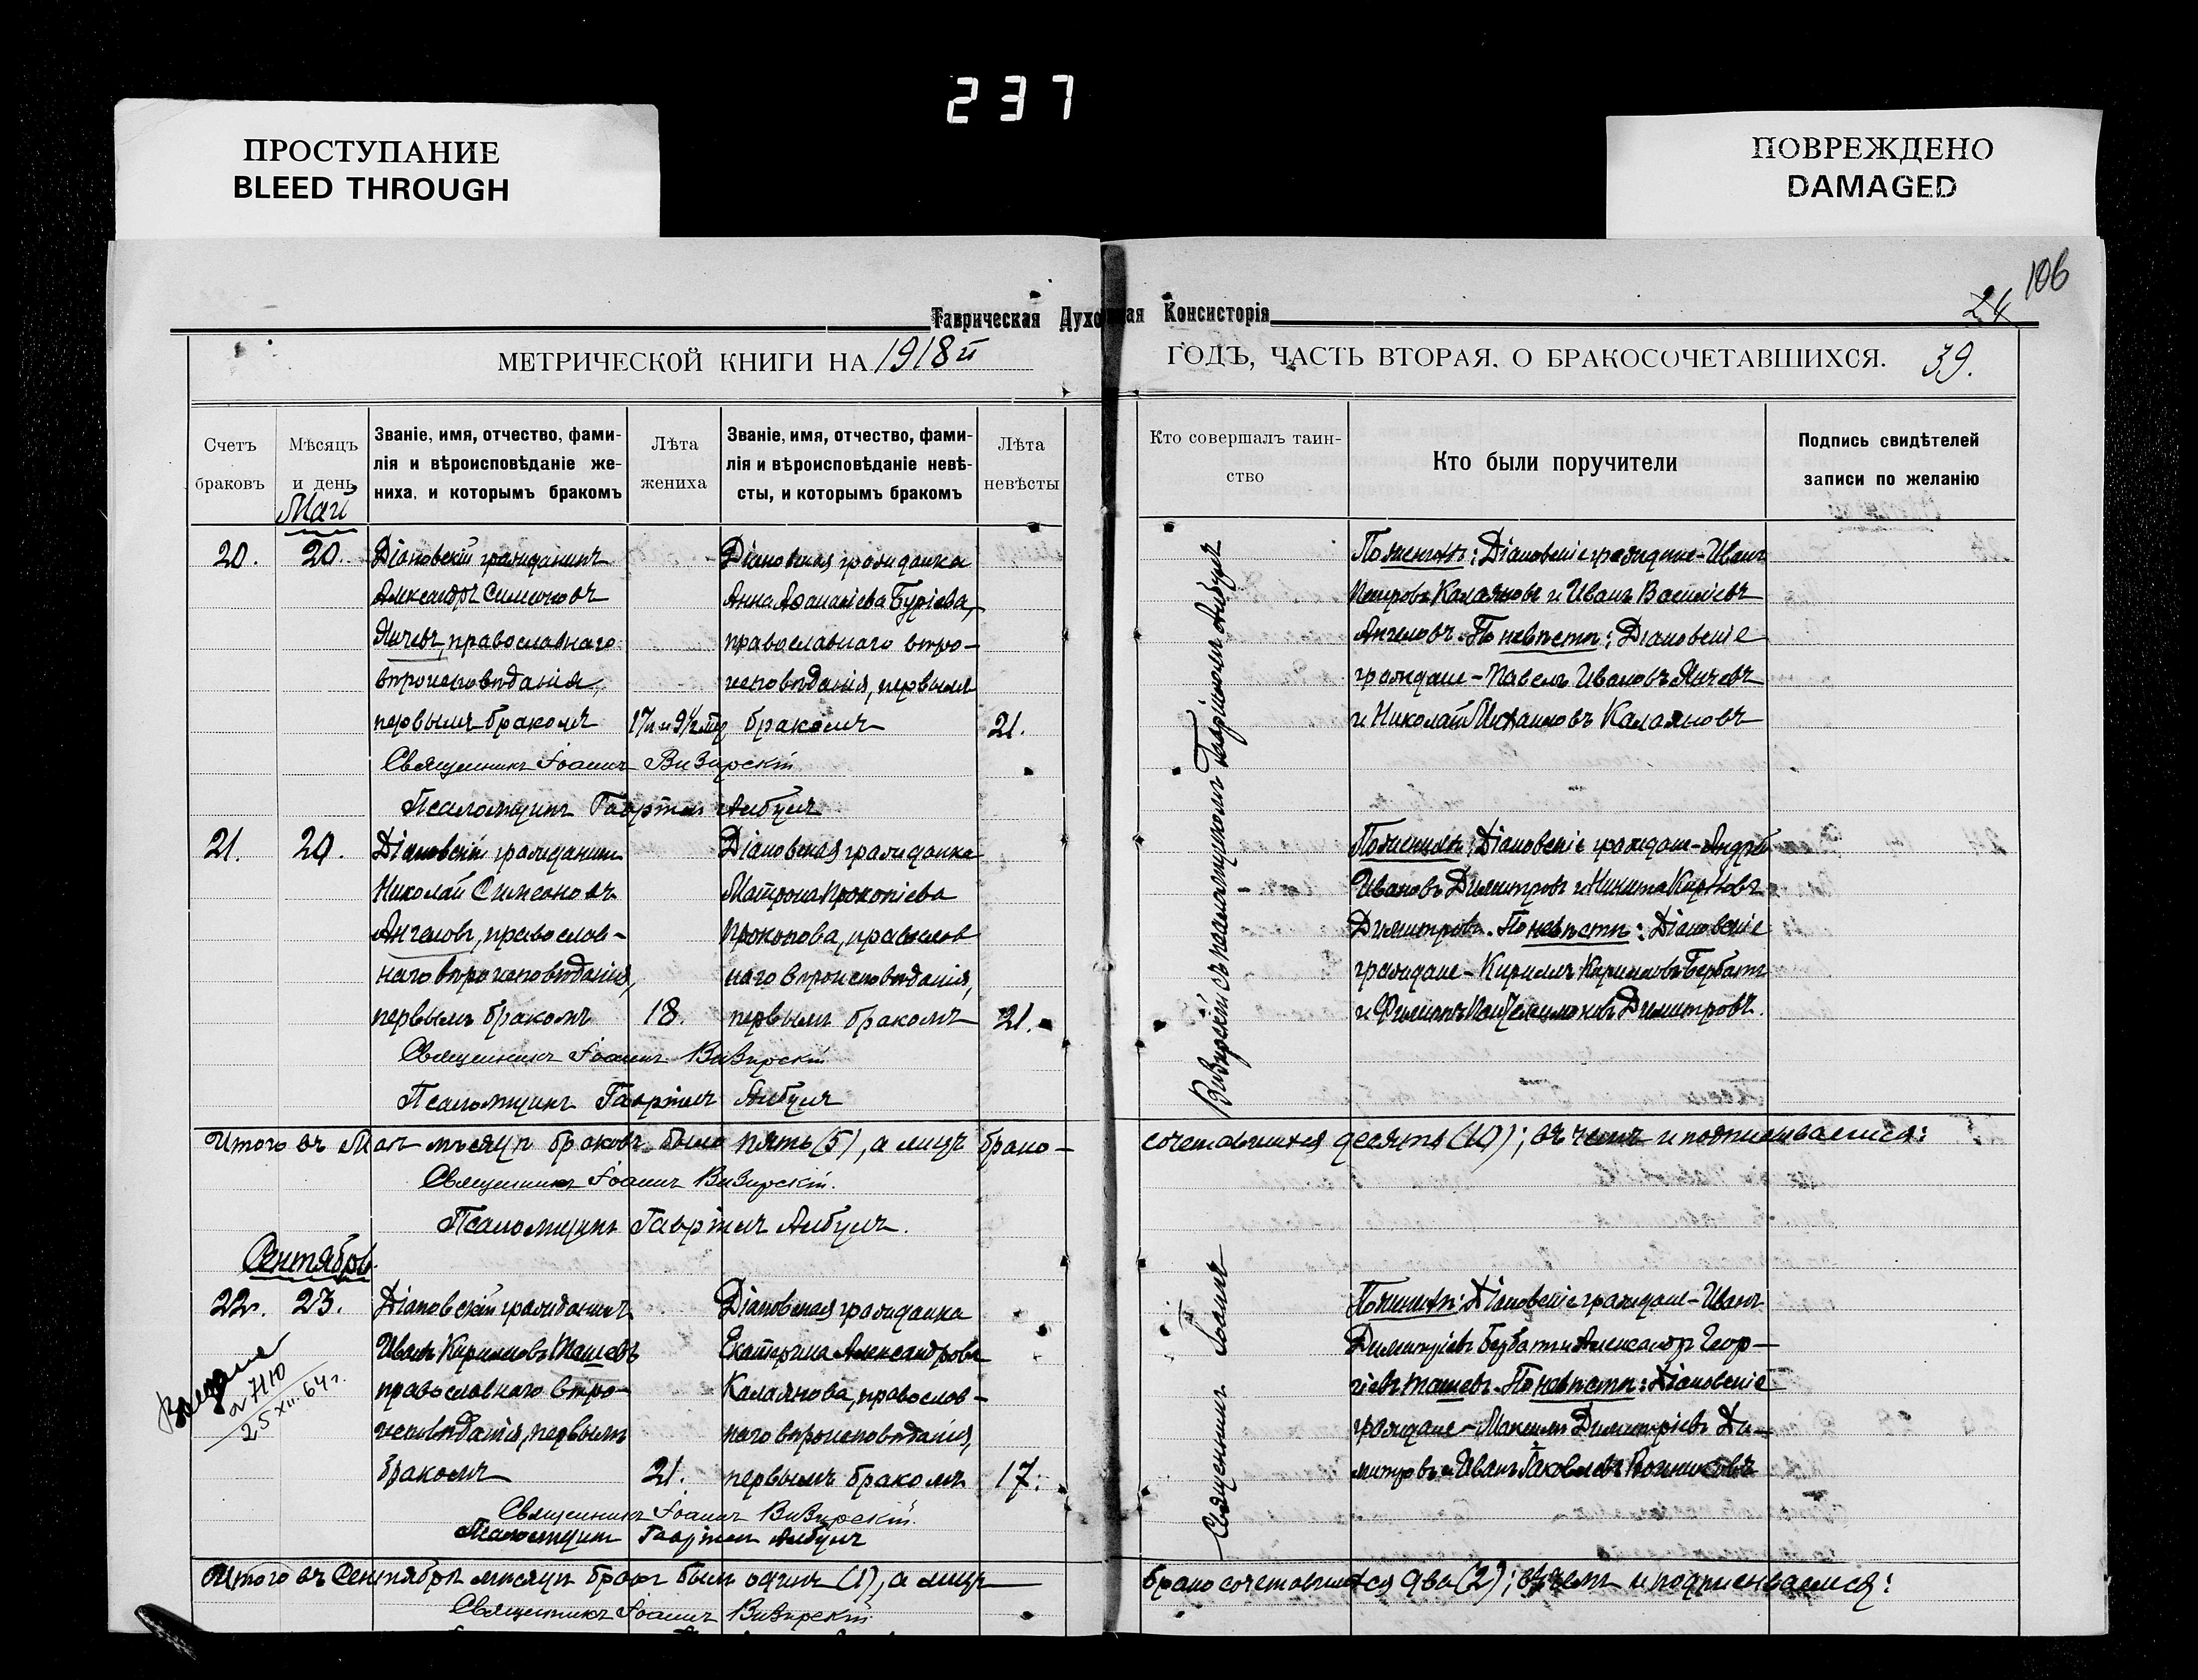 237
ПРОСТУПАНИЕ
BLEED THROUGH
ПОВРЕЖДЕНО
DAMAGED
106
24
Таврическая Духовная Консисторія
МЕТРИЧЕСКОЙ КНИГИ НА 1918й
ГОДЪ, ЧАСТЬ ВТОРАЯ, О БРАКОСОЧЕТАВШИХСЯ. 39.
Счетъ браковъ
Мѣсяцъ и день
Званіе, имя, отчество, фами-
лія и вѣроисповѣданіе же-
ниха, и которымъ бракомъ
Лѣта жениха
Званіе, имя, отчество, фами-
лія и вѣроисповѣданіе невѣ-
сты, и которымъ бракомъ
Лѣта невѣсты
Кто совершалъ таин-
ство
Кто были поручители
Подпись свидѣтелей
записи по желанію
Май
20. 20.
Діановскій гражданинъ
Александръ Симеоновъ
Янчевъ, православнаго
вѣроисповѣданія,
первымъ бракомъ
Діановская гражданка
Анна Аѳанасіева Буріева,
православнаго вѣро-
исповѣданія, первымъ
бракомъ
21.
По женихѣ: Діановскіе граждане - Иванъ
Петровъ Калаяновъ и Иванъ Василіевъ
Ангеловъ. По невѣстѣ: Діановскіе
граждане - Павелъ Ивановъ Янчевъ
и Николай Калаяновъ
Священникъ Іоаннъ Визирскій
Псаломщикъ Гавріилъ Албулъ
21. 20.
Діановскій гражданинъ
Николай Симеоновъ
Ангеловъ, православ-
наго вѣроисповѣданія,
первымъ бракомъ
18.
Діановская гражданка
Матрона Прокопіева
Прокопова, православ
наго вѣроисповѣданія,
первымъ бракомъ
21.
По женихѣ: Діановскіе граждане - Андрей
Ивановъ Димитровъ и Никита Карповъ
Димитровъ. По невѣстѣ: Діановскіе
граждане - Кириллъ Кирилловъ Бербатъ
и Филиппъ Пантелимоновъ Димитровъ.
Священникъ Іоаннъ Визирскій
Псаломщикъ Гавріилъ Албулъ
Визирскій съ псаломщикомъ Гавріиломъ Албулъ
Итого въ Маѣ мѣсяцѣ браковъ было пять (5), а лицъ брако-
сочетавшихся десять (10); въ чемъ и подписываемся:
Священникъ Іоаннъ Визирскій.
Псаломщикъ Гавріилъ Албулъ.
Сентябрь
22. 23.
Діановскій гражданинъ
Иванъ Кирилловъ Ташевъ
православнаго вѣро-
исповѣданія, первымъ
бракомъ
21.
Діановская гражданка
Екатерина Александрова
Калаянова, православ-
наго вѣроисповѣданія,
первымъ бракомъ
17.
Священникъ Іоаннъ
По женихѣ: Діановскіе граждане - Иванъ
Димитріевъ Бербатъ и Александръ Геор-
гіевъ Ташевъ. По невѣстѣ: Діановскіе
граждане - Максимъ Димитріевъ Ди-
митровъ и Иванъ Іаковлевъ
25 XII. 64 г.
Священникъ Іоаннъ Визирскій.
Псаломщикъ Гавріилъ Албулъ
Итого въ Сентябрѣ мѣсяцѣ бракъ былъ одинъ (1), а лицъ
брако сочетавшихся два (2); въ чемъ и подписываемся:
Священникъ Іоаннъ Визирскій